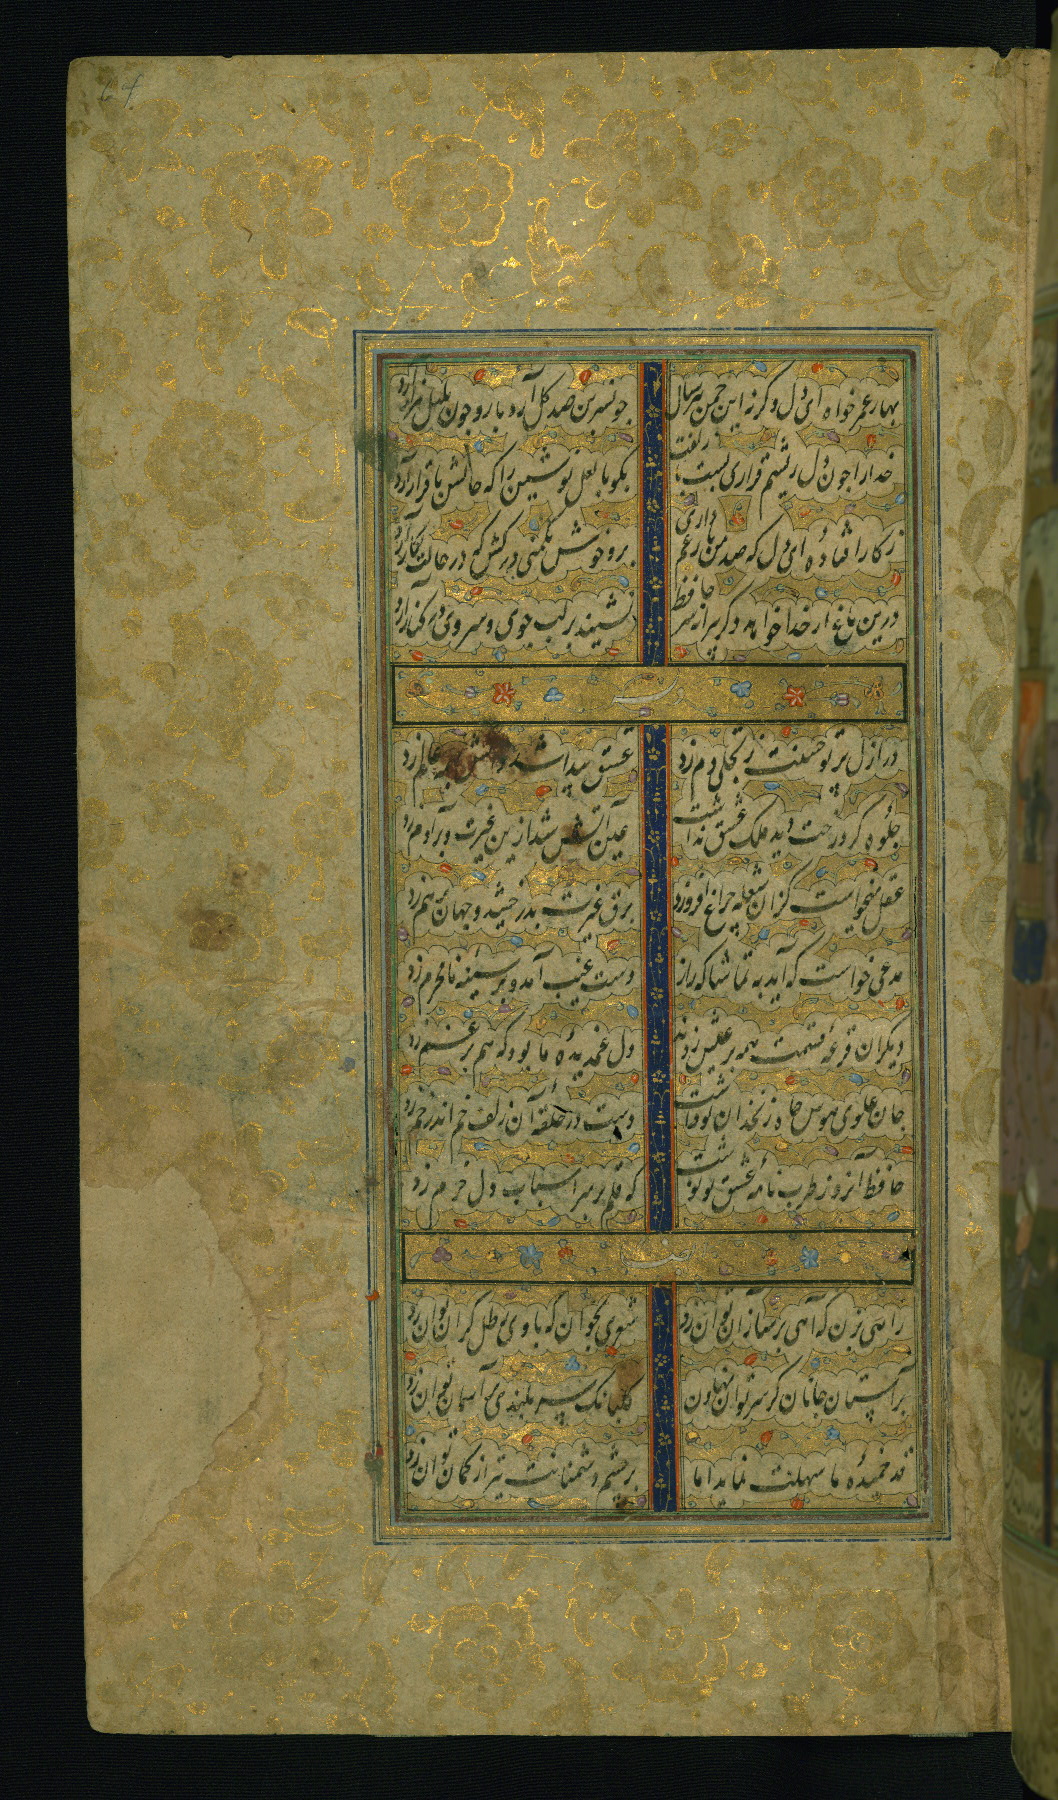 بهار عمر خواه ای دل وگرنه این چمن هر سال
چو نسرین صد گل آرد بار و چون بلبل هزار آرد
خدا را چون دل ریشم قراری بست با زلفت
بگو با لعل نوشین را که حالش با قرار آرد
ز کار افتاده‌ای دل که صد من بار غم داری
برو خوش یکمنی درکش که در حالت بکار آرد
درین باغ از خدا خواهد دگر پیرانه سر حافظ
نشیند بر لب جوی و سروی در کنار آرد
در ازل پرتو حسنت ز تجلی دم زد
عشق پیدا شد و آتش بهمه عالم زد
جلوه کرد رخت دید ملک عشق نداشت
عین آتش شد ازین غیرت و بر آدم زد
عقل میخواست کزان شعله چراغ افروزد
برق غیرت بدرخشید و جهان بر هم زد
مدعی خواست که آید به تماشاگه راز
دست غیب آمد و بر سینه نامحرم زد
دیگران قرعه قسمت همه بر عیش زدند
دل غمدیده ما بود که هم بر غم زد
جان علوی هوس چاه زنخدان تو داشت
دست در حلقه آن زلف خم اندر خم زد
حافظ آنروز طرب نامه عشق تو نوشت
که قلم بر سر اسباب دل خرم زد
راهی بزن که آهی بر ساز آن توان زد
شعری بخوان که با وی رطل گران توان زد
بر آستان جانان گر سر توان نهادن
گلبانک سر بلندی بر آسمان توان زد
قد خمیده ما سهلت نماید اما
بر چشم دشمنانت تیر از کمان توان زد